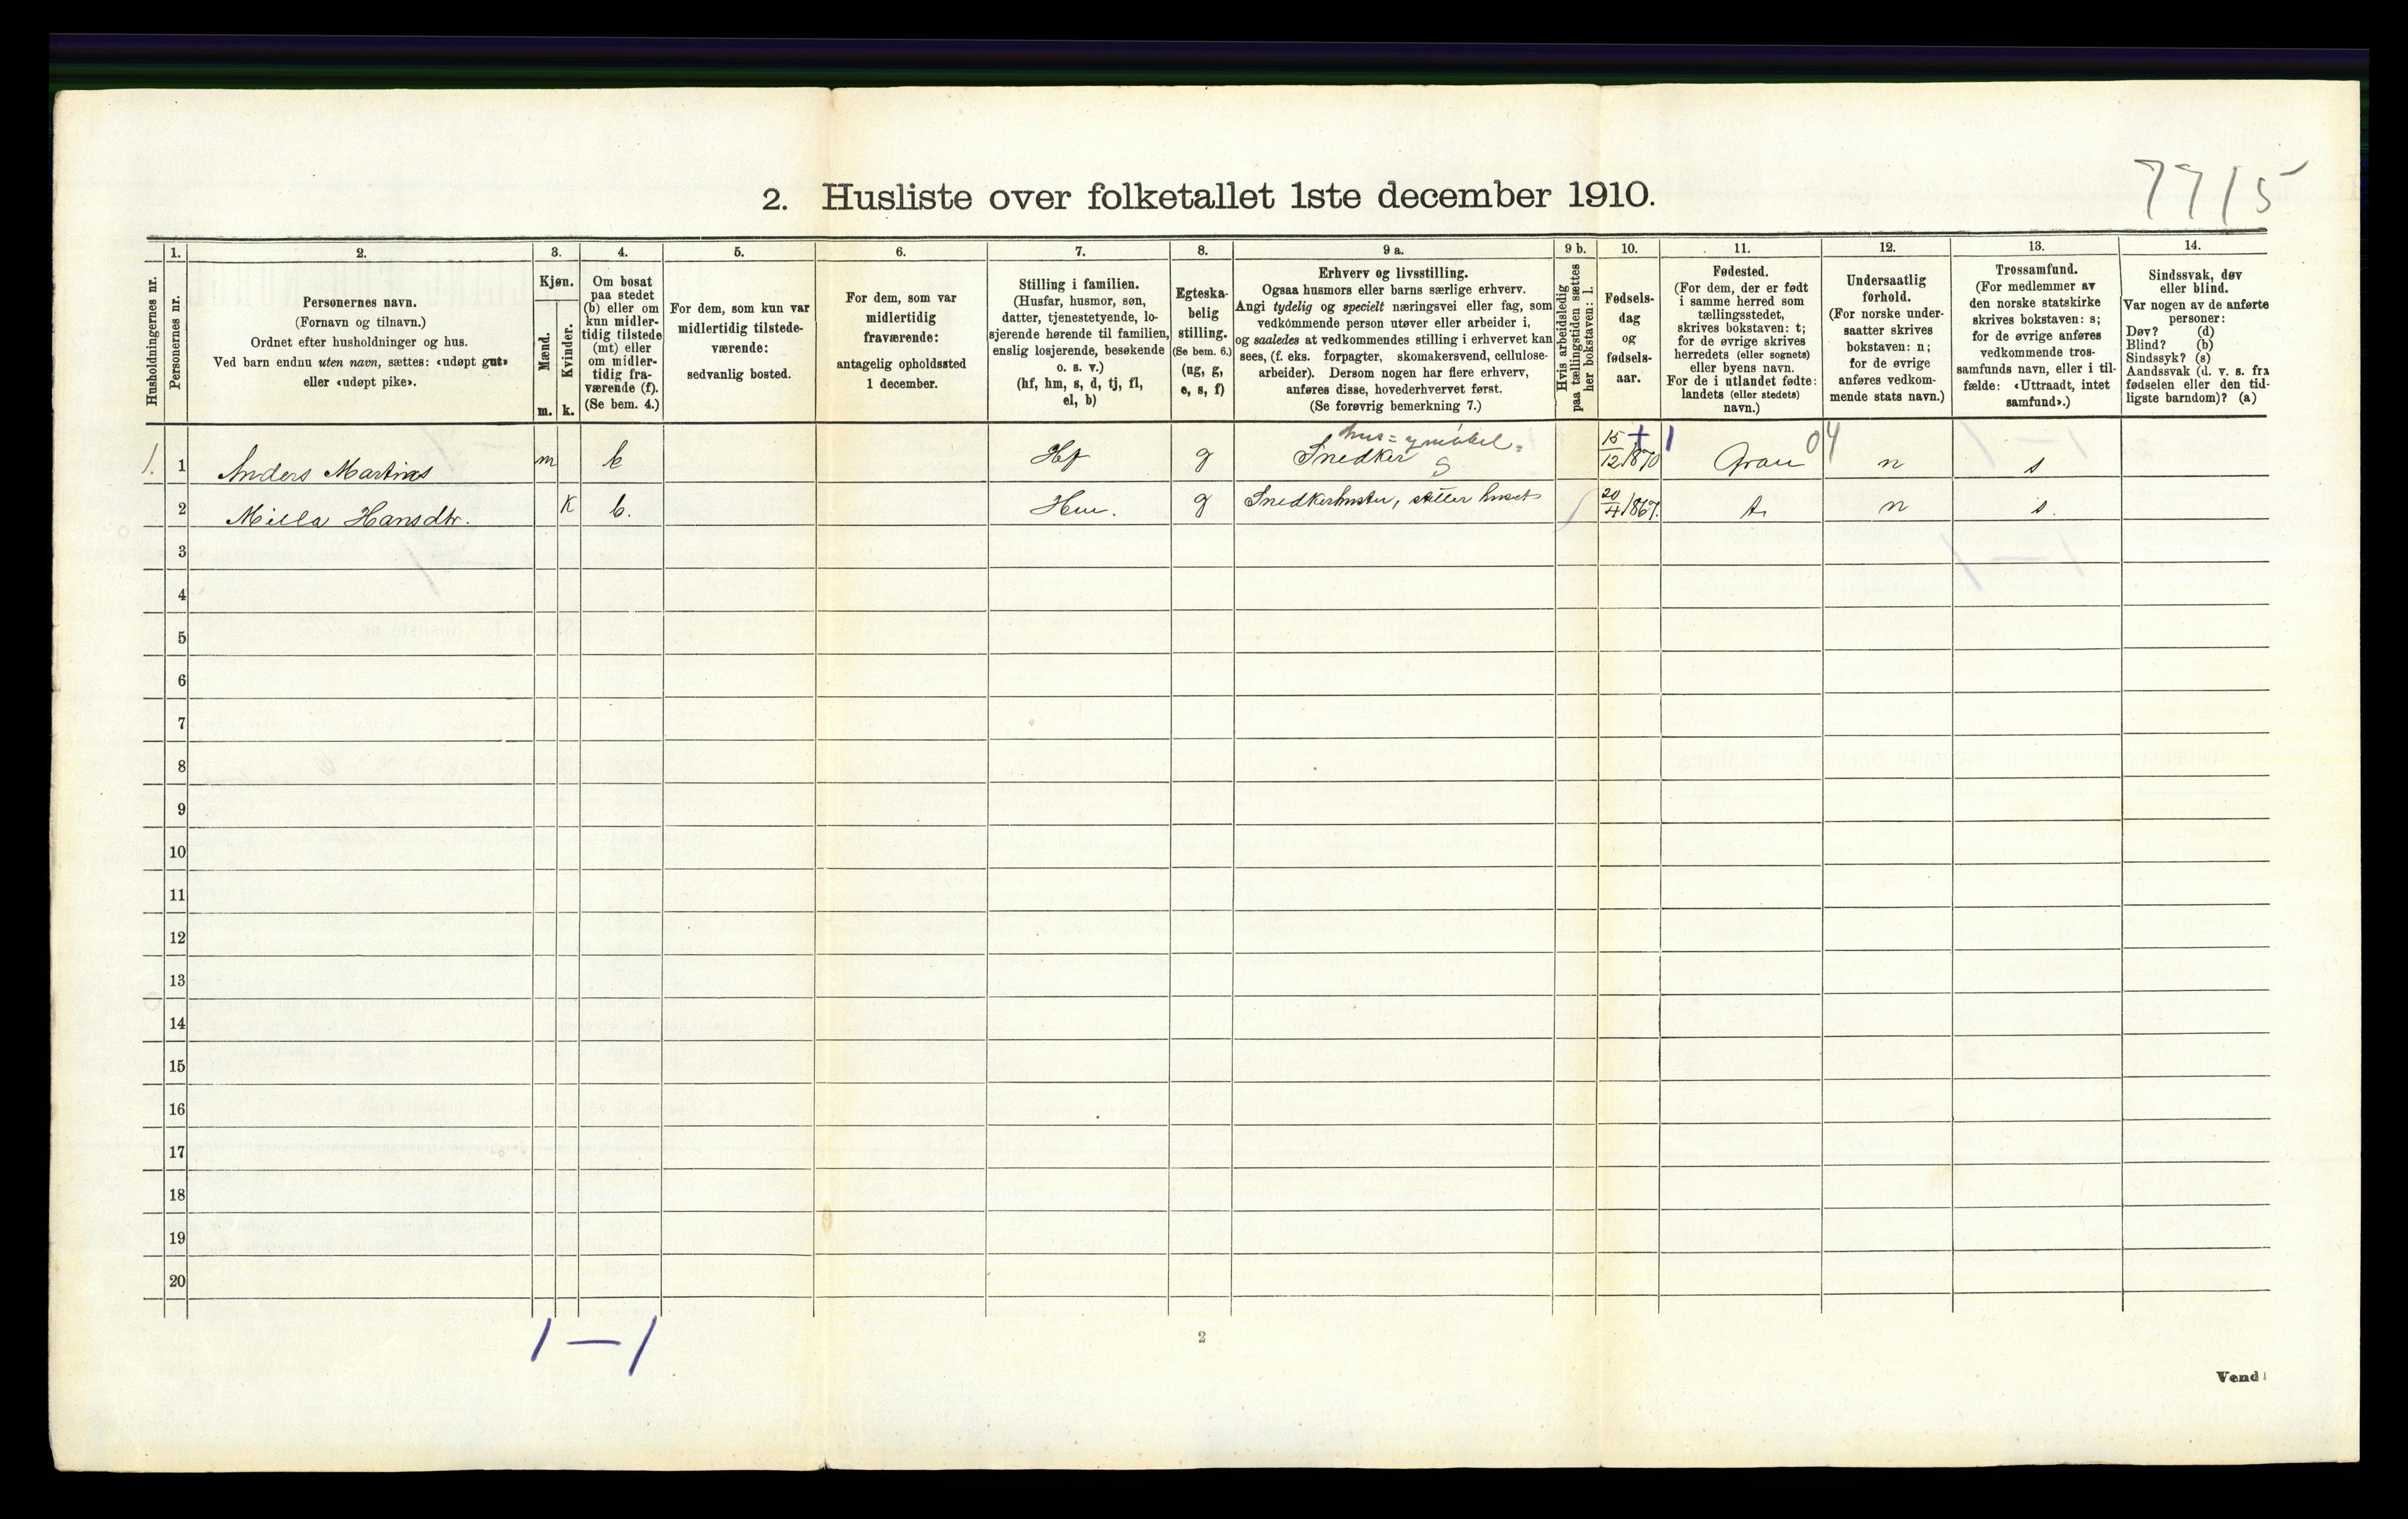 7715
2. Husliste over folketallet 1ste december 1910.
1. 2. 3. 4. 5. 6. 7. 8. 9 a. 9 b. 10. 11. 12. 13. 14.
Husholdningernes nr.
Personernes nr.
Personernes navn.
(Fornavn og tilnavn.)
Ordnet efter husholdninger og hus.
Ved barn endnu uten navn, sættes: «udøpt gut»
eller «udøpt pike».
Kjøn.
Mænd.
Kvinder.
m. k.
Om bosat
paa stedet
(b) eller om
kun midler-
tidig tilstede
(mt) eller
om midler-
tidig fra-
værende (f).
(Se bem. 4.)
For dem, som kun var
midlertidig tilstede-
værende:
sedvanlig bosted.
For dem, som var
midlertidig
fraværende:
antagelig opholdssted
1 december.
Stilling i familien.
(Husfar, husmor, søn,
datter, tjenestetyende, lo-
sjerende hørende til familien,
enslig losjerende, besøkende
o. s. v.)
(hf, hm, s, d, tj, fl,
el, b)
Egteska-
belig
stilling.
(Se bem. 6.)
(ug, g,
e, s, f)
Erhverv og livsstilling.
Ogsaa husmors eller barns særlige erhverv.
Angi tydelig og specielt næringsvei eller fag, som
vedkommende person utøver eller arbeider i,
og saaledes at vedkommendes stilling i erhvervet kan
sees, (f. eks. forpagter, skomakersvend, cellulose-
arbeider). Dersom nogen har flere erhverv,
anføres disse, hovederhvervet først.
(Se forøvrig bemerkning 7.)
Hvis arbeidsledig
paa tællingstiden sættes
her bokstaven: l.
Fødsels-
dag
og
fødsels-
aar.
Fødested.
(For dem, der er født
i samme herred som
tællingsstedet,
skrives bokstaven: t;
for de øvrige skrives
herredets (eller sognets)
eller byens navn.
For de i utlandet fødte:
landets (eller stedets)
navn.)
Undersaatlig
forhold.
(For norske under-
saatter skrives
bokstaven: n;
for de øvrige
anføres vedkom-
mende stats navn.)
Trossamfund.
(For medlemmer av
den norske statskirke
skrives bokstaven: s;
for de øvrige anføres
vedkommende tros-
samfunds navn, eller i til-
fælde: «Uttraadt, intet
samfund».)
Sindssvak, døv
eller blind.
Var nogen av de anførte
personer:
Døv? (d)
Blind? (b)
Sindssyk? (s)
Aandssvak (d. v. s. fra
fødselen eller den tid-
ligste barndom)? (a)
hus= møbel= 15 + 1 04
1. 1 Anders m b Hf g Snedker S 12 1870 Gran n s
2 Milla Hansdtr. K b. Hm. g Snedkerhustru, steller huset 20/4 1867. t. n s.
3
4
5
6
7
8
9
10
11
12
13
14
15
16
17
18
19
20
1 — 1
2
Vend!